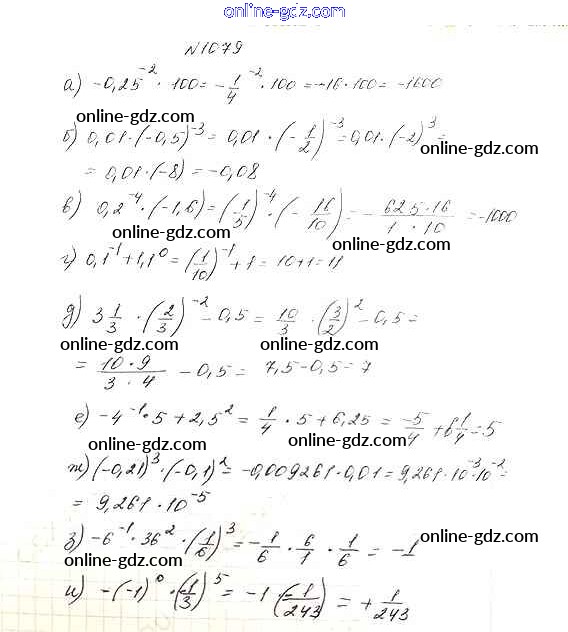 online-gdz.com
N1079
а) -0,25⁻² · 100 = -1/4⁻² · 100 = -16 · 100 = -1600
online-gdz.com
б) 0,01 · (-0,5)⁻³ = 0,01 · (-1/2)⁻³ = 0,01 · (-2)³ =
online-gdz.com
= 0,01 · (-8) = -0,08
в) 0,2⁻⁴ · (-1,6) = (1/5)⁻⁴ · (-16/10) = - 625 · 16 / 1 · 10 = -1000
online-gdz.com online-gdz.com
г) 0,1⁻¹ + 1,1⁰ = (1/10)⁻¹ + 1 = 10 + 1 = 11
д) 3 1/3 · (2/3)⁻² - 0,5 = 10/3 · (3/2)² - 0,5 =
online-gdz.com online-gdz.com
= 10 · 9 / 3 · 4 - 0,5 = 7,5 - 0,5 = 7
е) -4⁻¹ · 5 + 2,5² = 1/4 · 5 + 6,25 = -5/4 + 6 1/4 = 5
online-gdz.com online-gdz.com
ж) (-0,21)³ · (-0,1)² = -0,009261 · 0,01 = 9,261 · 10⁻³ · 10⁻² =
online-gdz.com
= 9,261 · 10⁻⁵
з) -6⁻¹ · 36² · (1/6)³ = -1/6 · 6/1 · 1/6 = -1
online-gdz.com online-gdz.com
и) -(-1)⁰ · (-1/3)⁵ = -1 · (-1/243) = + 1/243
online-gdz.com online-gdz.com